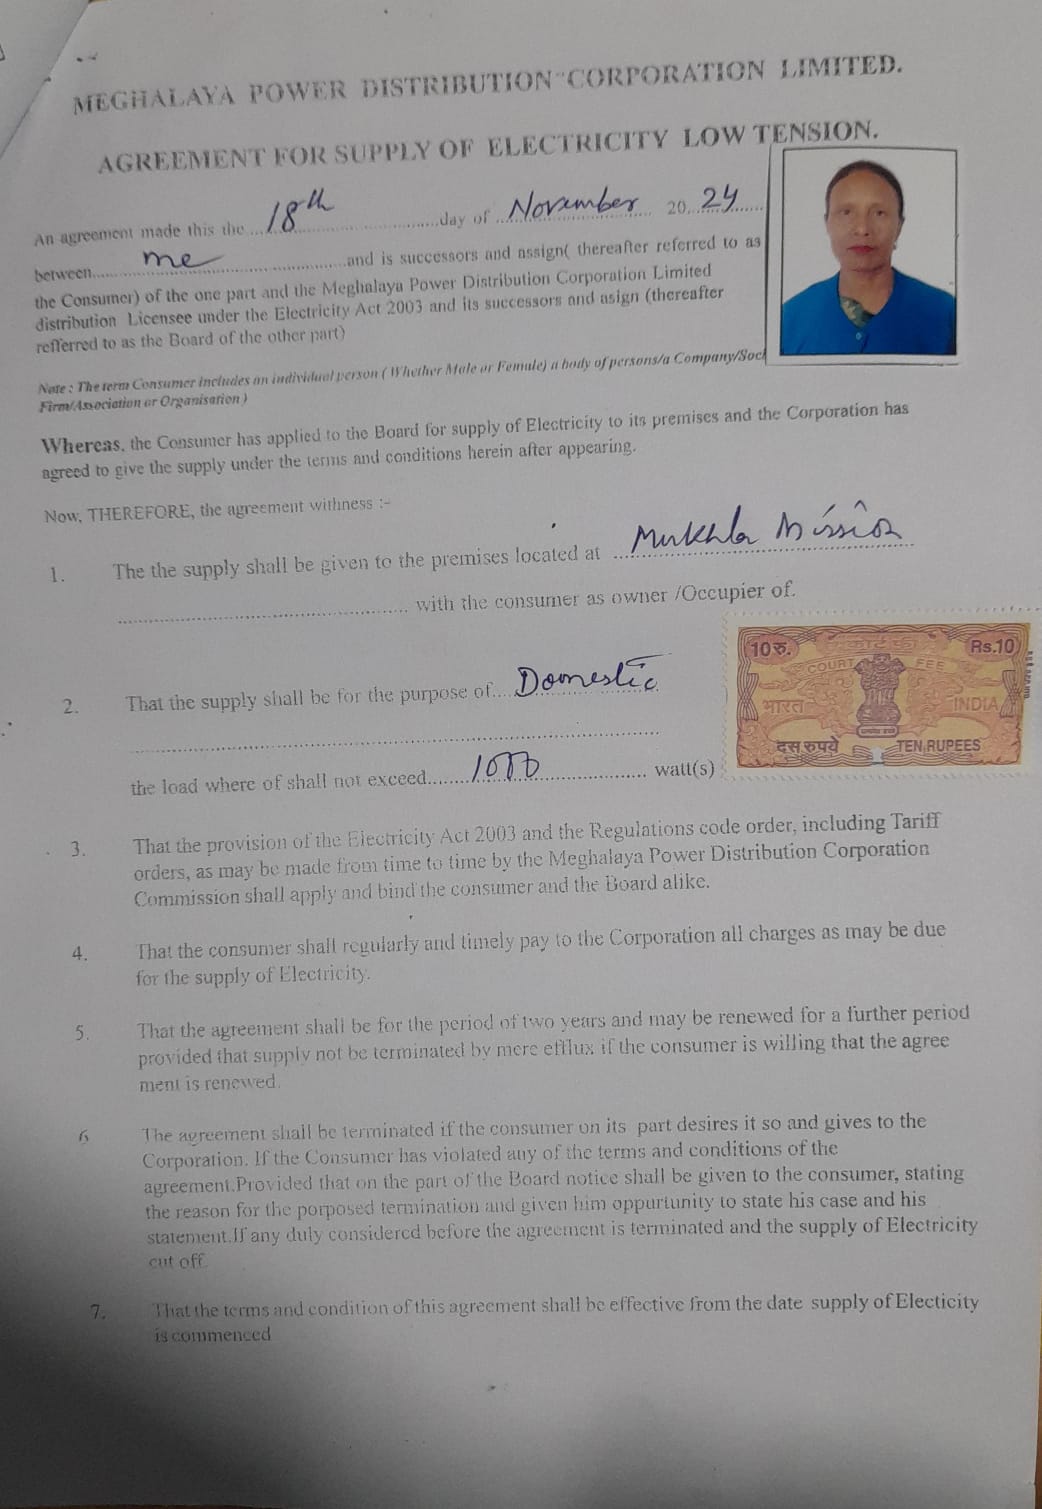 MEGHALAYA POWER DISTRIBUTION CORPORATION LIMITED.
AGREEMENT FOR SUPPLY OF ELECTRICITY LOW TENSION.
An agreement made this the ... 18th ... day of ... November ... 20 ... 24 ...
between ... me ... and is successors and assign( thereafter referred to as
the Consumer) of the one part and the Meghalaya Power Distribution Corporation Limited
distribution Licensee under the Electricity Act 2003 and its successors and asign (thereafter
refferred to as the Board of the other part)
Note : The term Consumer includes an individual person ( Whether Male or Female) a body of persons/a Company/Soci
Firm/Association or Organisation )
Whereas, the Consumer has applied to the Board for supply of Electricity to its premises and the Corporation has
agreed to give the supply under the terms and conditions herein after appearing.
Now, THEREFORE, the agreement withness :-
1. The the supply shall be given to the premises located at ... Mukhla Mission
... with the consumer as owner /Occupier of.
10 रु. कोर्ट फी Rs.10
COURT FEE
भारत INDIA
दस रुपये TEN RUPEES
2. That the supply shall be for the purpose of.... Domestic
the load where of shall not exceed ... 1000 ... watt(s)
3. That the provision of the Electricity Act 2003 and the Regulations code order, including Tariff
orders, as may be made from time to time by the Meghalaya Power Distribution Corporation
Commission shall apply and bind the consumer and the Board alike.
4. That the consumer shall regularly and timely pay to the Corporation all charges as may be due
for the supply of Electricity.
5. That the agreement shall be for the period of two years and may be renewed for a further period
provided that supply not be terminated by mere efflux if the consumer is willing that the agree
ment is renewed.
6 The agreement shall be terminated if the consumer on its part desires it so and gives to the
Corporation. If the Consumer has violated any of the terms and conditions of the
agreement.Provided that on the part of the Board notice shall be given to the consumer, stating
the reason for the porposed termination and given him oppurtunity to state his case and his
statement.If any duly considered before the agreement is terminated and the supply of Electricity
cut off.
7. That the terms and condition of this agreement shall be effective from the date supply of Electicity
is commenced